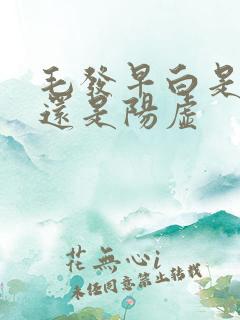 毛發早白是
還是陽虛
花無心i
未經同意禁止轉載